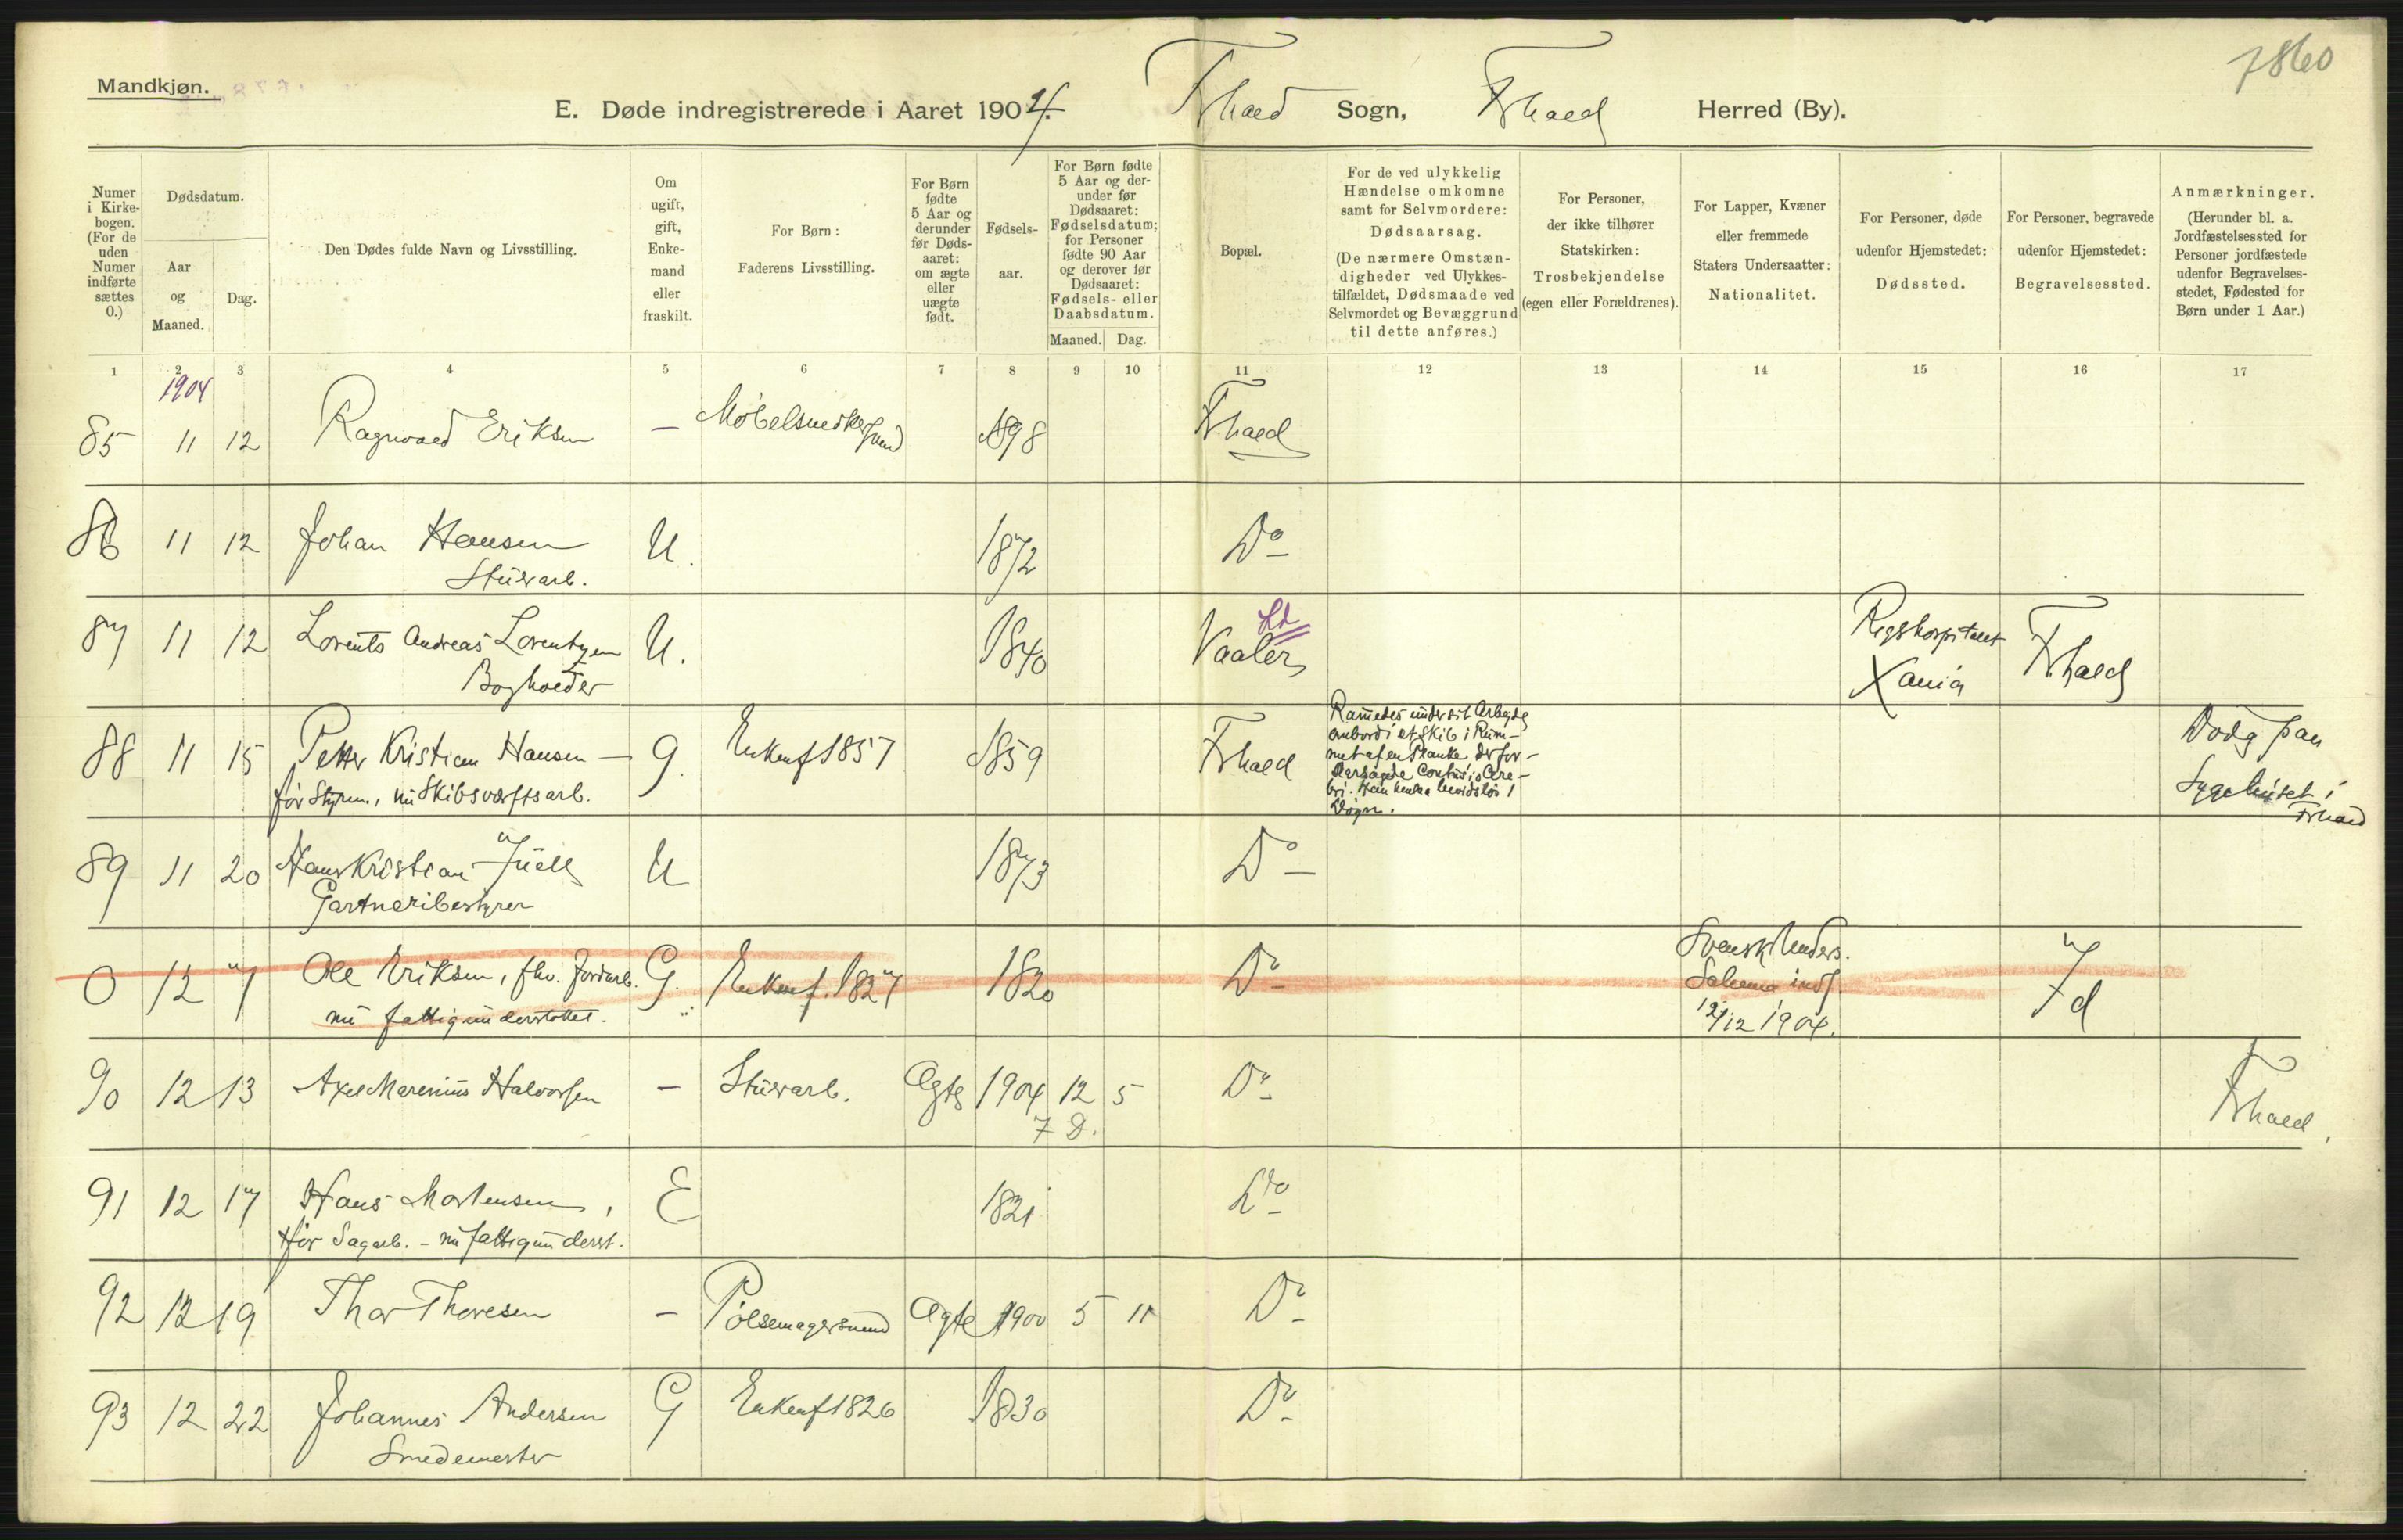 7860
Mandkjøn.
E. Døde indregistrerede i Aaret 1904. Frhald Sogn, Frhald Herred (By).
Numer i Kirkebogen. (For de uden Numer indførte sættes 0.)
Dødsdatum.
Aar og Maaned.
Dag.
Den Dødes fulde Navn og Livsstilling.
Om ugift, gift, Enkemand eller fraskilt.
For Børn: Faderens Livsstilling.
For Børn fødte 5 Aar og derunder før Dødsaaret: om ægte eller uægte født.
Fødselsaar.
For Børn fødte 5 Aar og derunder før Dødsaaret: Fødselsdatum; for Personer fødte 90 Aar og derover før Dødsaaret: Fødsels- eller Daabsdatum.
Maaned. Dag.
Bopæl.
For de ved ulykkelig Hændelse omkomne samt for Selvmordere: Dødsaarsag. (De nærmere Omstændigheder ved Ulykkestilfældet, Dødsmaade ved Selvmordet og Bevæggrund til dette anføres.)
For Personer, der ikke tilhører Statskirken: Trosbekjendelse (egen eller Forældrenes).
For Lapper, Kvæner eller fremmede Staters Undersaatter: Nationalitet.
For Personer, døde udenfor Hjemstedet: Dødssted.
For Personer, begravede udenfor Hjemstedet: Begravelsessted.
Anmærkninger. (Herunder bl. a. Jordfæstelsessted for Personer jordfæstede udenfor Begravelsesstedet, Fødested for Børn under 1 Aar.)
1 2 3 4 5 6 7 8 9 10 11 12 13 14 15 16 17
1904
85 11 12 Ragnvald Eriksen — Møbelsnedkersvend 1898 Frhald
86 11 12 Johan Hansen U. 1872 Do
Stuvarb.
87 11 12 Lorents Andreas Lorentzen U. 1840 Vaaler Ld Rigshospitalet Frhald
Bogholder Xania
88 11 15 Petter Kristian Hansen — G. Enke f 1857 1859 Frhald
før Styrm., nu Skibsværftsarb.
Ramedes under sit Arbejde
ombord i et Skib i Rum-
met af en Planke der for-
aarsagede Contusio Cere-
bri. Han henlaa bevidstløs 1
Døgn.
Døde paa
Sygehuset i
Frhald
89 11 20 Hans Kristian Juell U 1873 Do
Gartneribestyrer
0 12 7 Ole Eriksen, fhv. Jordarb. G. Enke f. 1827 1820 Do
nu fattigunderstøttet.
Svensk Unders.
Schema inds.
12/12 1904.
Id
90 12 13 Axel Marenius Halvorsen — Stuvarb. Ægte 1904 12 5 Do Frhald.
7 D.
91 12 17 Hans Mortensen, E 1821 Do
før Sagarb. - nu fattigunderst.
92 12 19 Thor Thoresen — Pølsemagersvend Ægte 1900 5 11 Do
93 12 22 Johannes Andersen G Enke f 1826 1830 Do
Smedemester